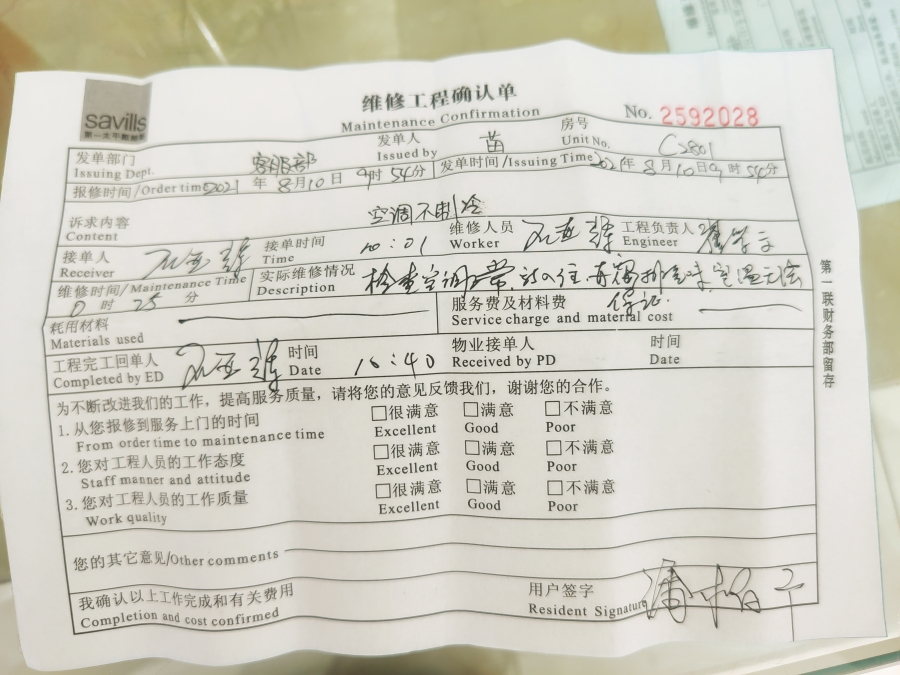 savills
第一太平戴维斯
维修工程确认单
Maintenance Confirmation
No. 2592028
发单部门 客服部 发单人 苗 房号 C2801
Issuing Dept. Issued by Unit No.
报修时间/Order time 2021 年 8 月 10 日 9 时 54 分 发单时间/Issuing Time 2021 年 8 月 10 日 9 时 54 分
诉求内容 空调不制冷
Content
接单人 接单时间 10:01 维修人员 工程负责人
Receiver Time Worker Engineer
维修时间/Maintenance Time 实际维修情况 检查空调正常
0 时 25 分 Description 室温无法
保证.
耗用材料 服务费及材料费
Materials used Service charge and material cost
工程完工回单人 时间 10:40 物业接单人 时间
Completed by ED Date Received by PD Date
为不断改进我们的工作，提高服务质量，请将您的意见反馈我们，谢谢您的合作。
1.从您报修到服务上门的时间 □很满意 □满意 □不满意
From order time to maintenance time Excellent Good Poor
2.您对工程人员的工作态度 □很满意 □满意 □不满意
Staff manner and attitude Excellent Good Poor
3.您对工程人员的工作质量 □很满意 □满意 □不满意
Work quality Excellent Good Poor
您的其它意见/Other comments
我确认以上工作完成和有关费用 用户签字
Completion and cost confirmed Resident Signature
第一联财务部留存